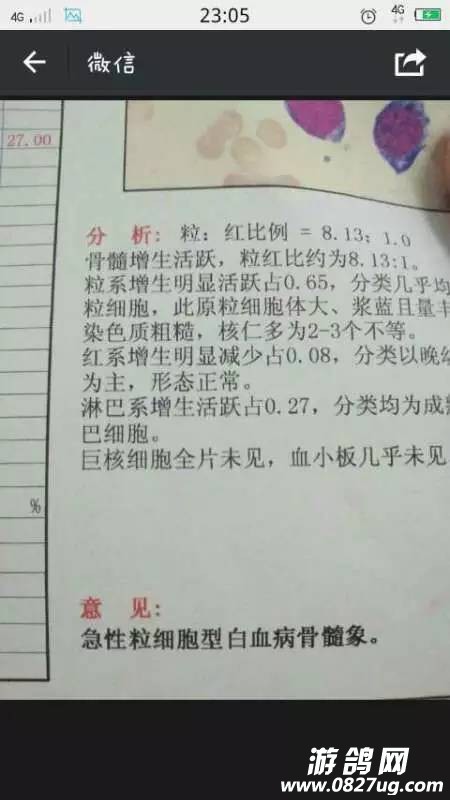 4G 23:05 4G
微信
27.00
分 析: 粒: 红比例 = 8.13: 1.0
骨髓增生活跃，粒红比约为8.13:1。
粒系增生明显活跃占0.65，分类几乎均
粒细胞，此原粒细胞体大、浆蓝且量丰
染色质粗糙，核仁多为2-3个不等。
红系增生明显减少占0.08，分类以晚幼
为主，形态正常。
淋巴系增生活跃占0.27，分类均为成熟
巴细胞。
巨核细胞全片未见，血小板几乎未见
%
意 见:
急性粒细胞型白血病骨髓象。
游鸽网
www.0827ug.com